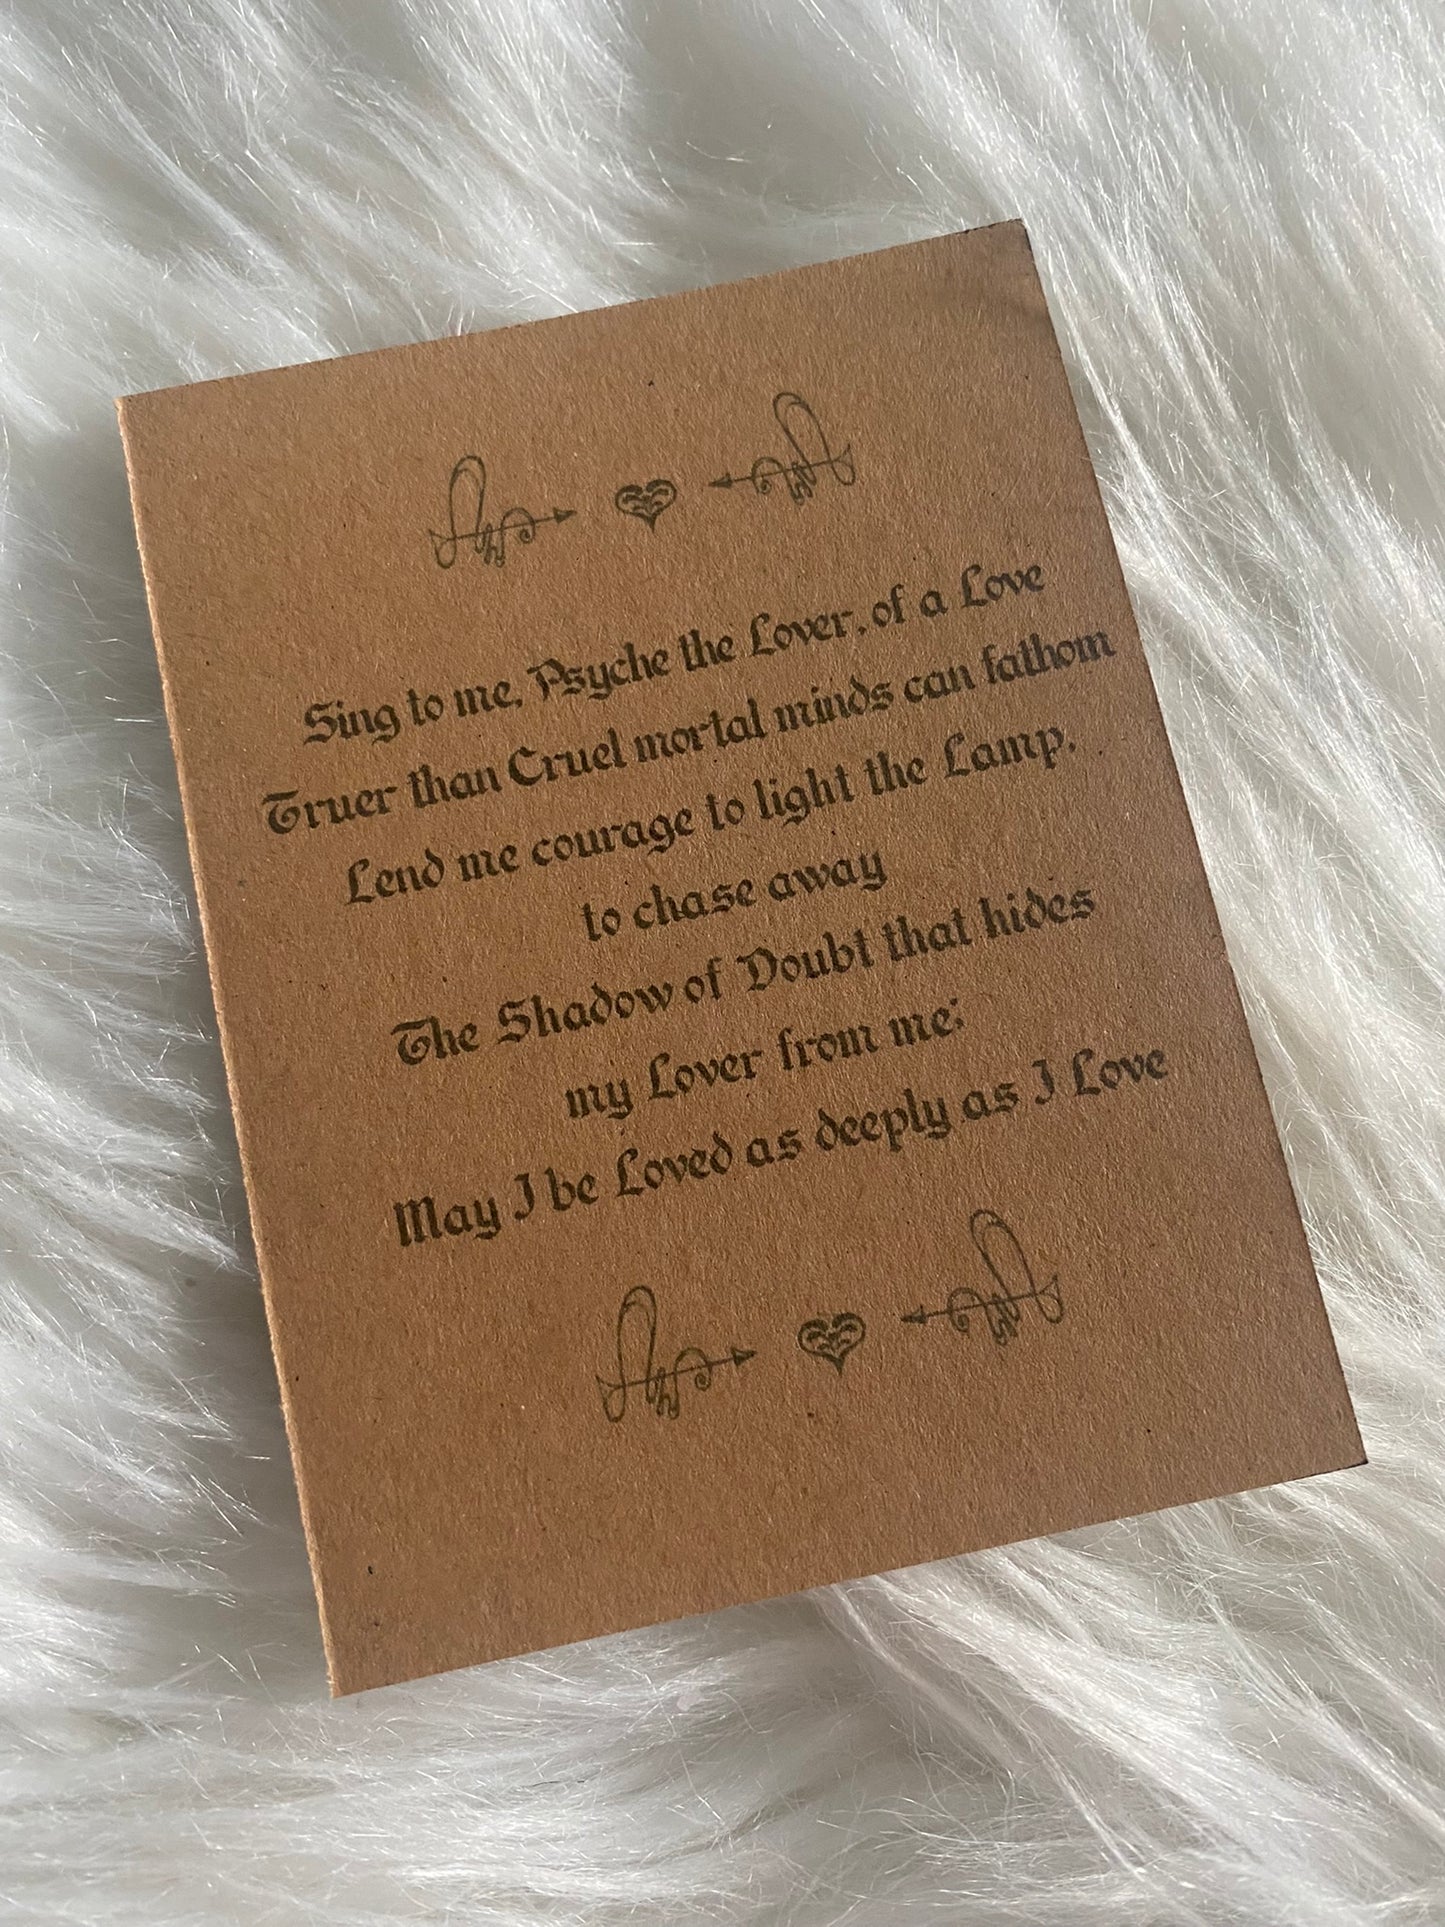 Sing to me, Psyche the Lover, of a Love
Truer than Cruel mortal minds can fathom
Lend me courage to light the Lamp,
to chase away
The Shadow of Doubt that hides
my Lover from me;
May I be Loved as deeply as I Love